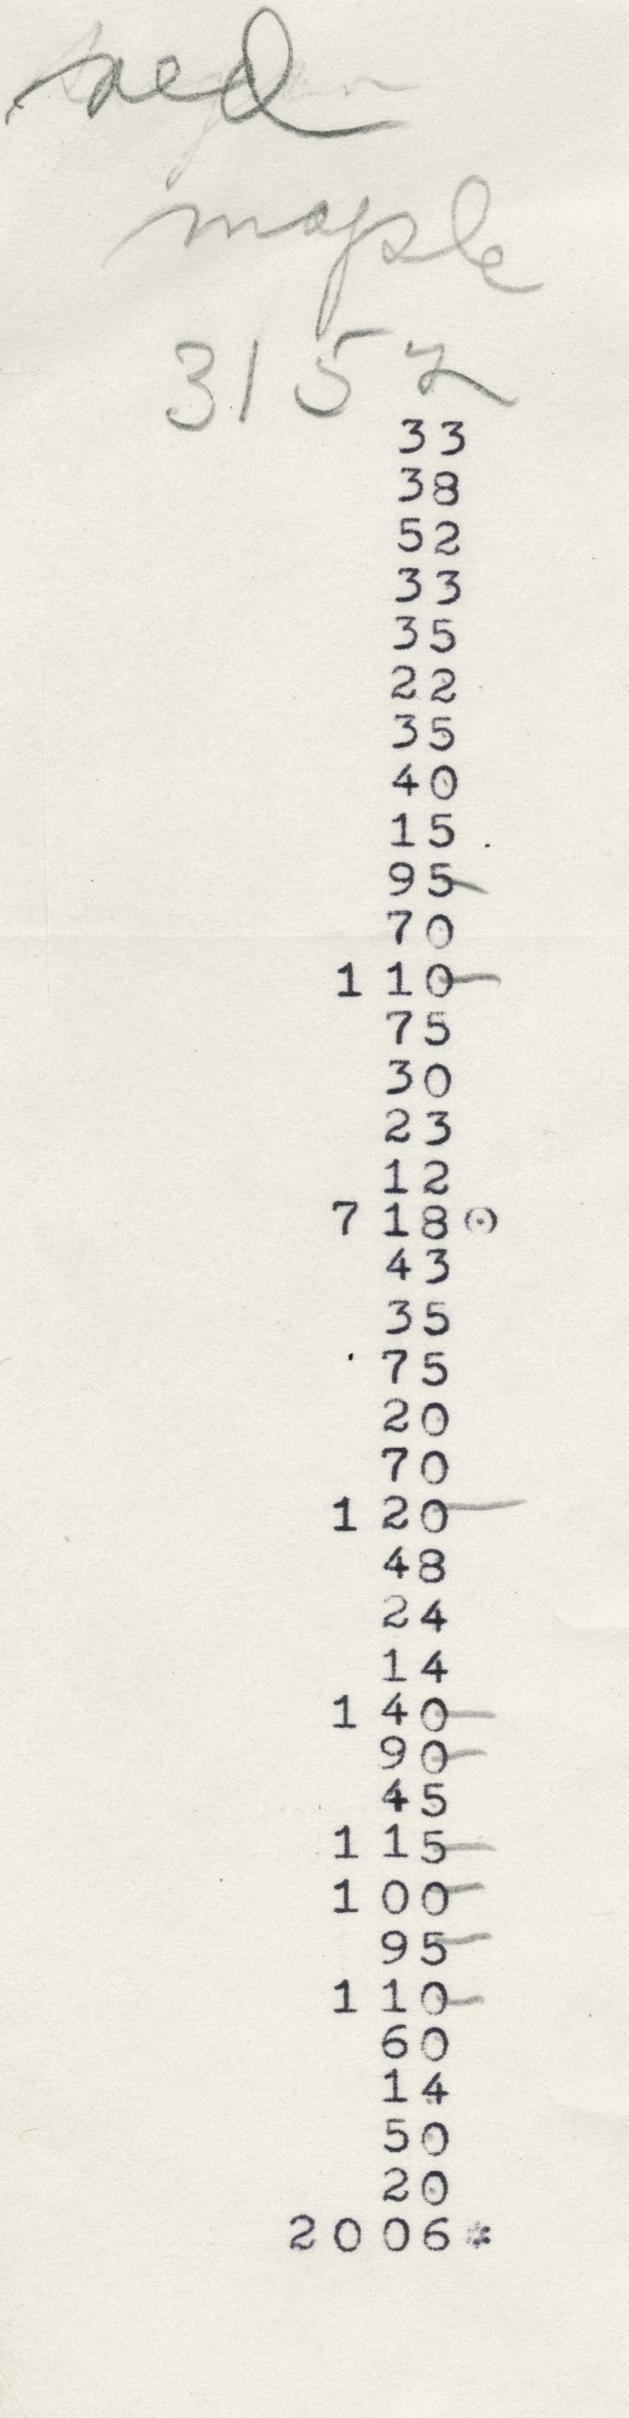 red
maple
3152
33
38
52
33
35
22
35
40
15
95
70
1 10
75
30
23
12
7 18 ⊙
43
35
75
20
70
1 20
48
24
14
1 40
90
45
1 15
1 00
95
1 10
60
14
50
20
20 06 *